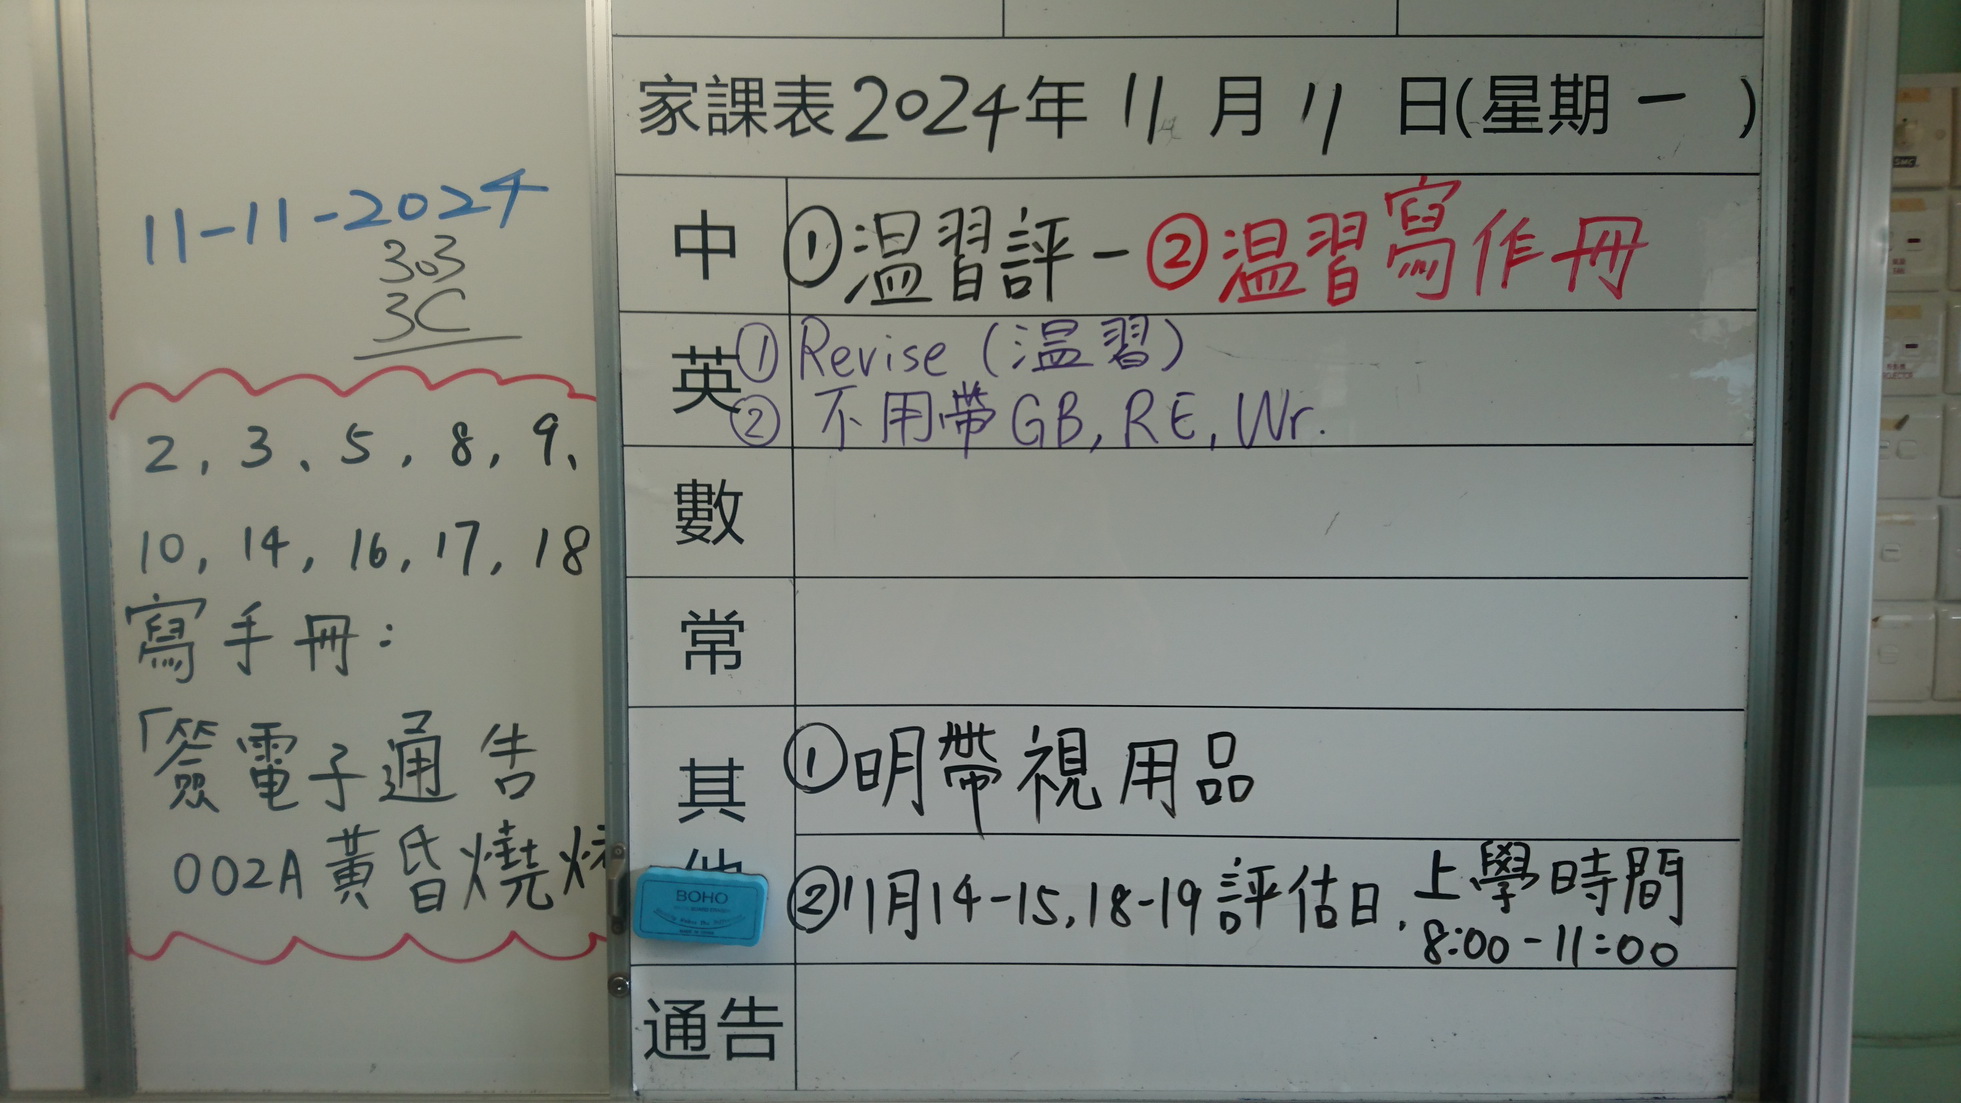 11-11-2024
303
3C
2, 3、5, 8, 9、
10, 14, 16, 17, 18
寫手冊：
「簽電子通告
002A黃昏燒
家課表2024年11月11日(星期一)
中 ①温習評一 ②温習寫作冊
英 ① Revise (温習)
② 不用帶GB, RE, Wr.
數
常
其他 ①明帶視用品
②11月14-15, 18-19評估日. 上學時間
8:00-11:00
通告
BOHO
SMC